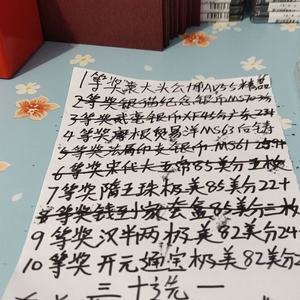 1等奖袁大头公博AU55精品
2等奖银猫纪念银币MS70
3等奖 银币XF45广东224
4等奖 贸易洋MS63
5等奖法属 银币MS61
6等奖宋代大五帝85美分五枚
7等奖隋五珠极美85美分22+
8等奖钱 家套盒85美分三枚
9等奖汉半两极美82美分24+
10等奖开元通宝极美82美分2
三十选一